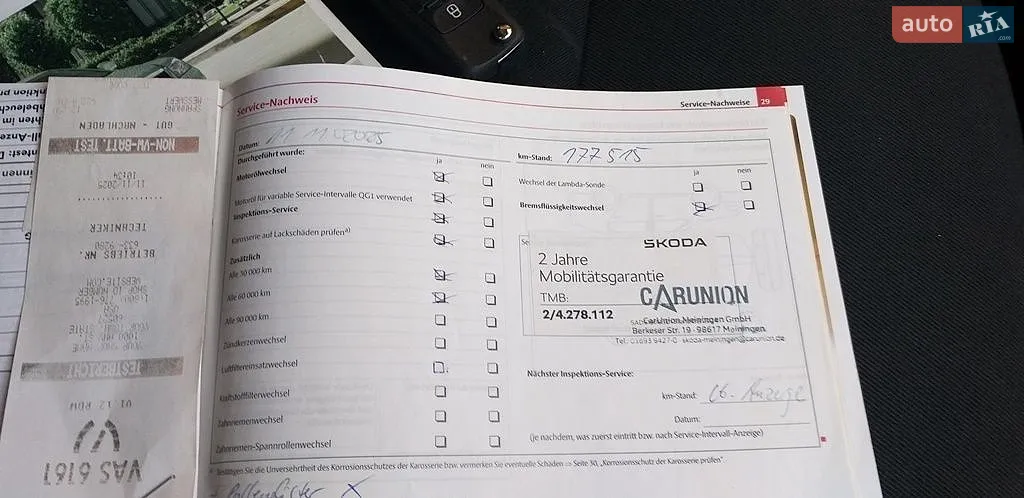 auto RIA.com
Service-Nachweis
Service-Nachweise 29
Datum: 11.11.2025
km-Stand: 177 515
Durchgeführt wurde:
ja nein
ja nein
Motorölwechsel
Wechsel der Lambda-Sonde
Motoröl für variable Service-Intervalle QG1 verwendet
Bremsflüssigkeitswechsel
Inspektions-Service
Karosserie auf Lackschäden prüfen a)
Zusätzlich
Alle 30 000 km
Alle 60 000 km
Alle 90 000 km
Zündkerzenwechsel
Luftfiltereinsatzwechsel
Kraftstofffilterwechsel
Zahnriemenwechsel
Zahnriemen-Spannrollenwechsel
SKODA
2 Jahre
Mobilitätsgarantie
TMB:
2/4.278.112
CARUNION
CarUnion Meiningen GmbH
Berkeser Str. 19 · 98617 Meiningen
skoda-meiningen@carunion.de
Nächster Inspektions-Service:
km-Stand: Lt. Anzeige
Datum:
(je nachdem, was zuerst eintritt bzw. nach Service-Intervall-Anzeige)
a) Bestätigen Sie die Unversehrtheit des Korrosionsschutzes der Karosserie bzw. vermerken Sie eventuelle Schäden ⇒ Seite 30, „Korrosionsschutz der Karosserie prüfen".
VAS 6161
V1.12 RDW
TESTBERICHT
YOUR SHOP NAME
1000 HWY
YOUR TOWN STATE
USA
SHOP ID NUMBER
WEBSITE.COM
BETRIEBS NR.
633-9280
TECHNIKER
11/11/2025
10:34
NON-VW-BATT.TEST
GUT - NACHLADEN
SPANNUNG
MESSWERT